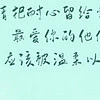 请把耐心留给
最爱你的他们
应该被温柔以